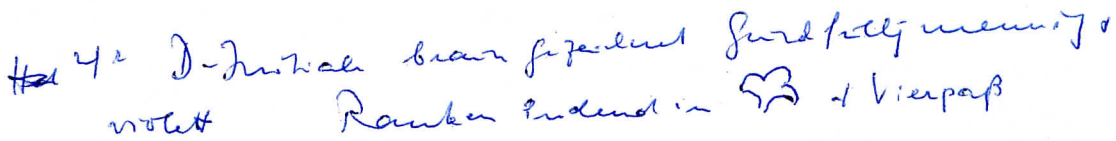 4r D-Initiale braun gezeichnet Grundfüllg mennig,
violett Ranken endend in u Vierpaß